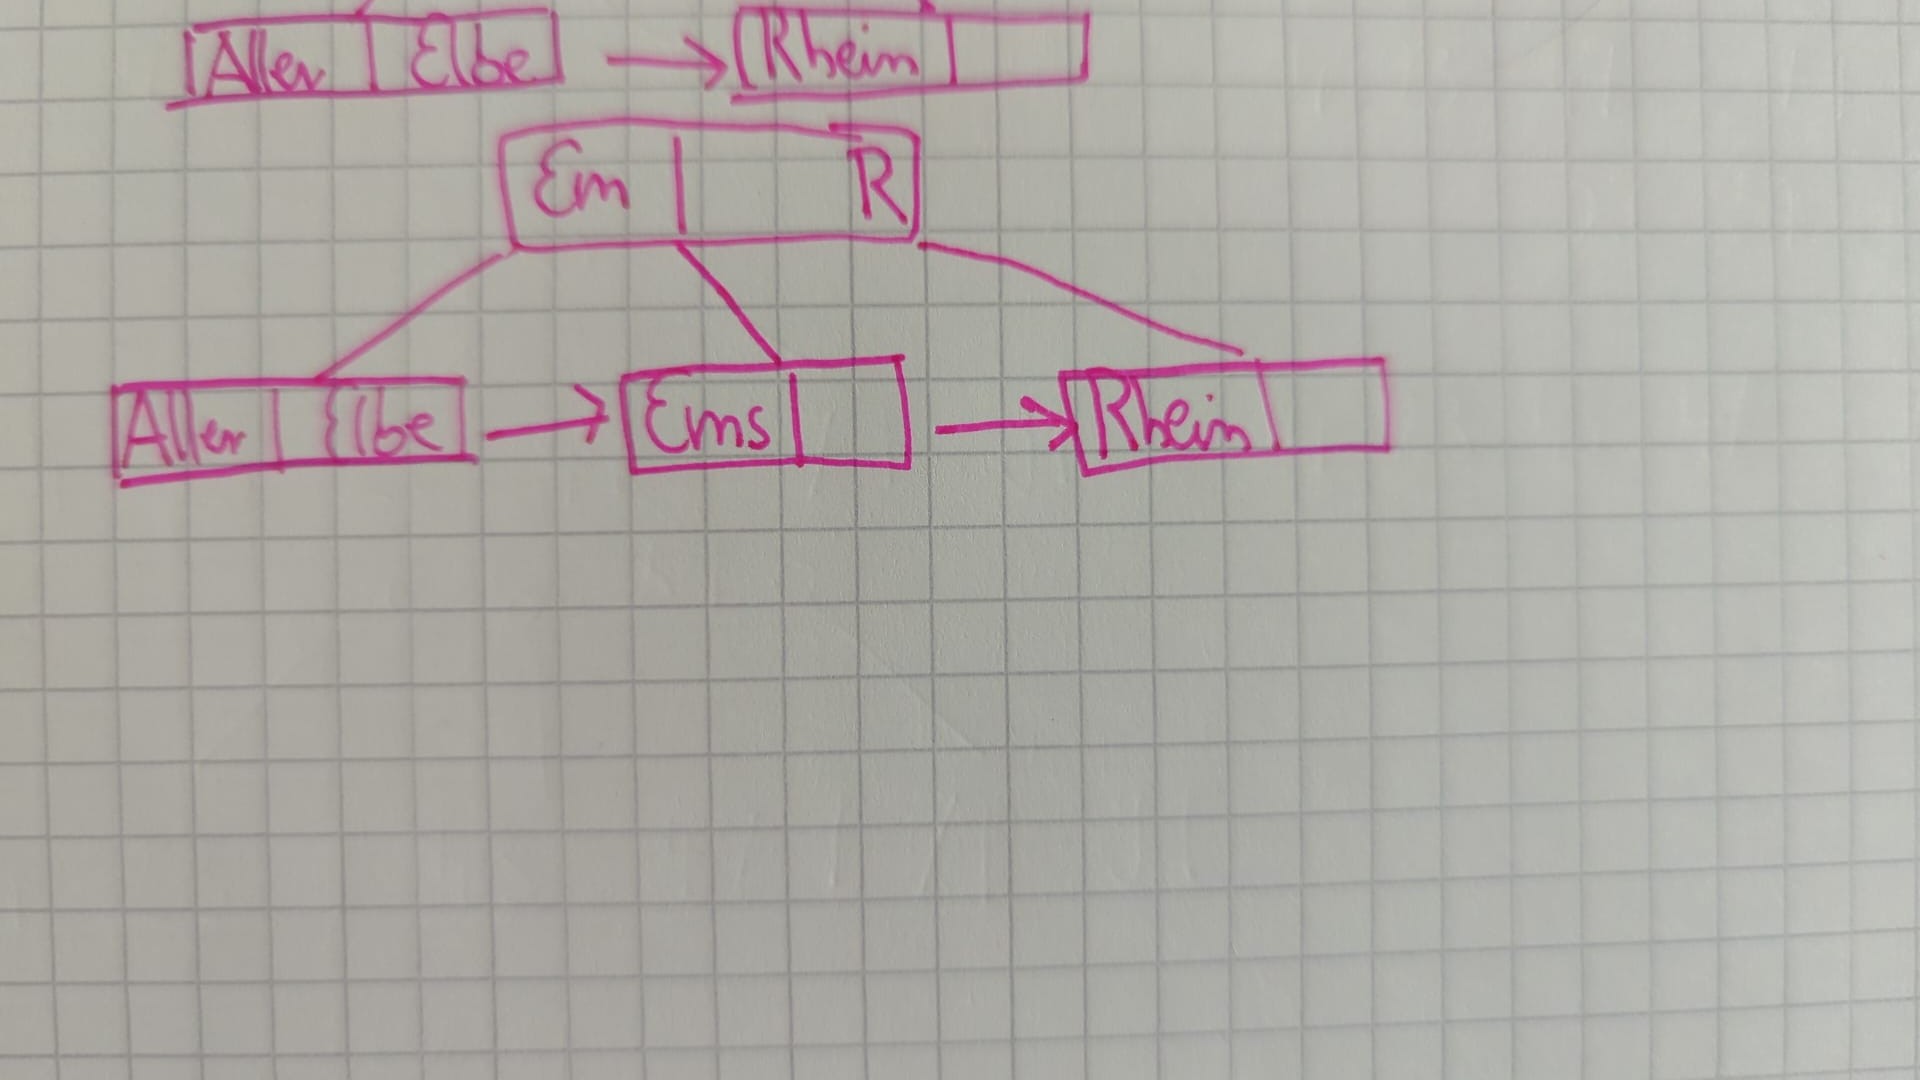 Aller Elbe Rhein
Em R
Aller Elbe Ems Rhein